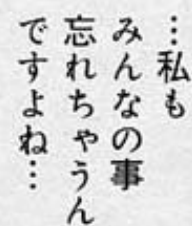 …私も
みんなの事
忘れちゃうん
ですよね…